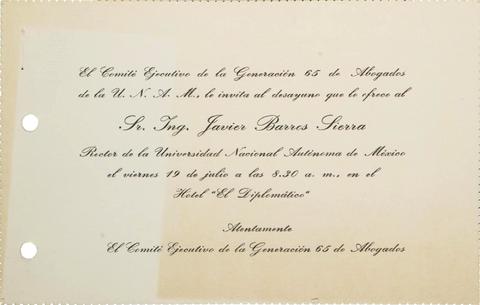 El Comité Ejecutivo de la Generación 65 de Abogados
de la U. N. A. M., le invita al desayuno que le ofrece al
Sr. Ing. Javier Barros Sierra
Rector de la Universidad Nacional Autónoma de México
el viernes 19 de julio a las 8.30 a. m., en el
Hotel "El Diplomático"
Atentamente
El Comité Ejecutivo de la Generación 65 de Abogados